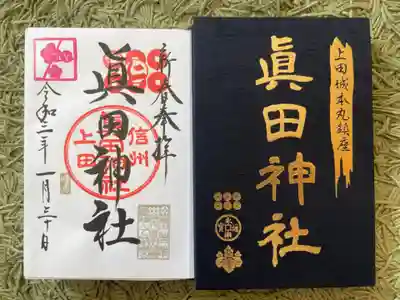 新春奉拝
眞田神社
信州
上田
令和二年一月三十日
上田城本丸鎮座
眞田神社